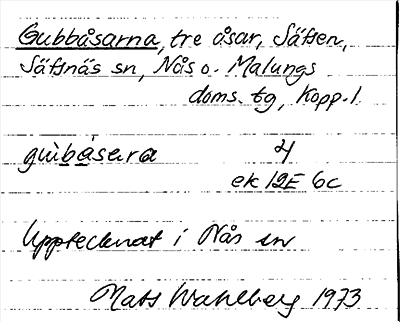 Gubbåsarna, tre åsar, Säfsen,
Säfsnäs sn, Nås o. Malungs
doms. tg, Kopp. l.
gùbå̀sara 4
ek 12E 6c
Upptecknat i Nås sn
Mats Wahlberg 1973